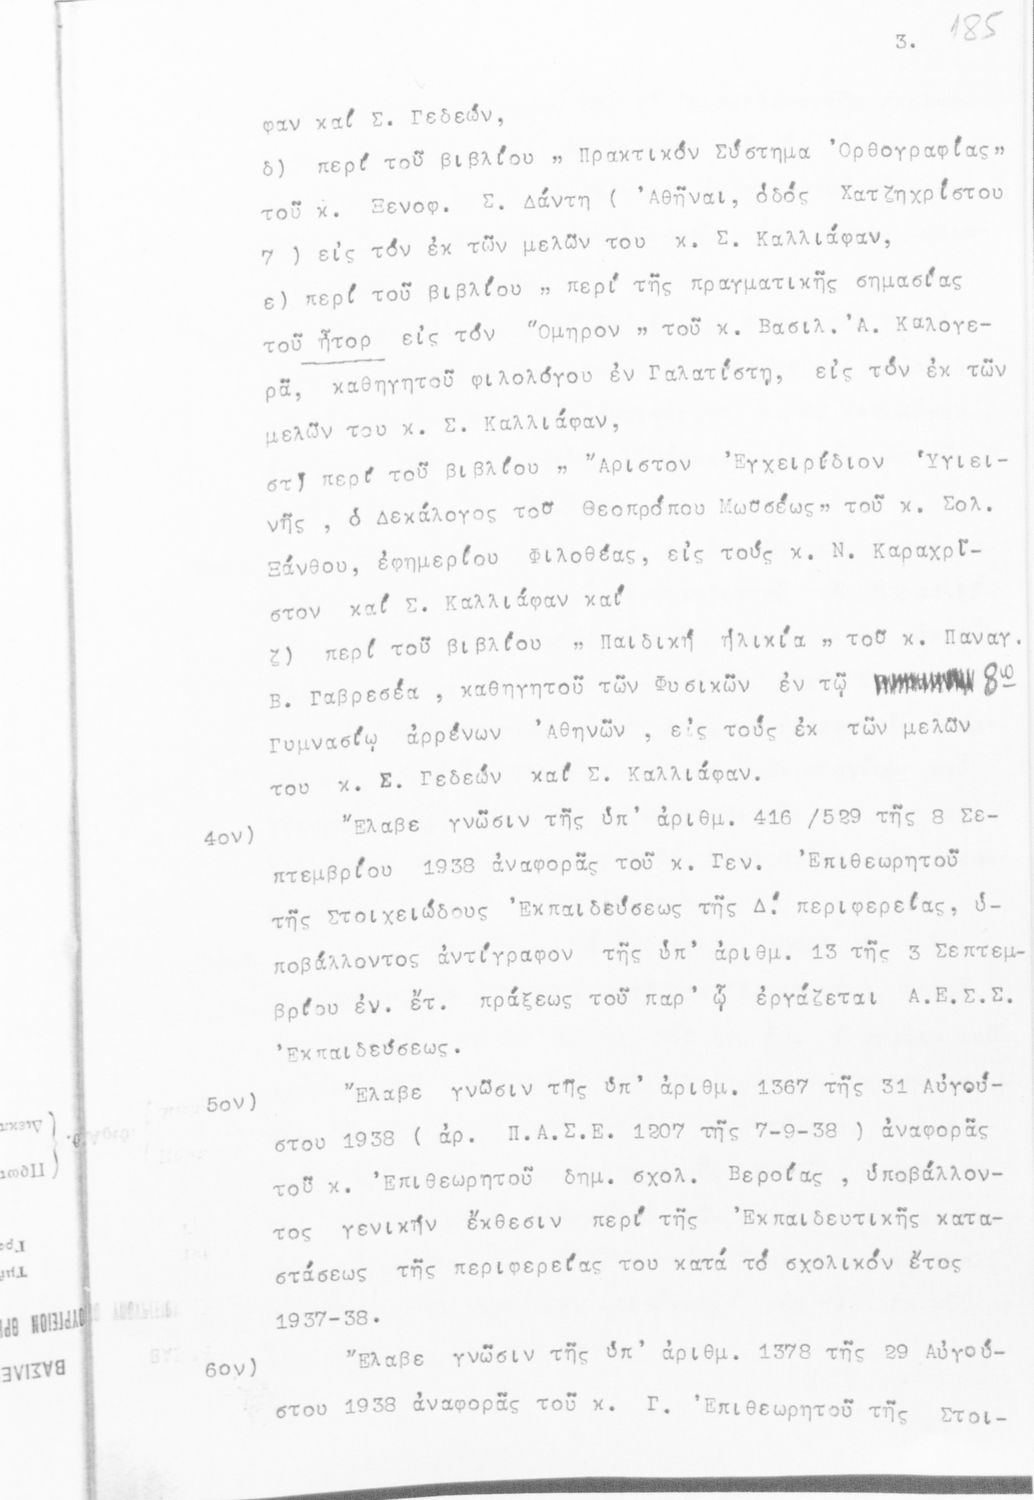 185
3.
φαν καί Σ. Γεδεών,
δ) περί τοῦ βιβλίου „ Πρακτικόν Σύστημα Ὀρθογραφίας”
τοῦ κ. Ξενοφ. Σ. Δάντη ( Ἀθῆναι, ὁδός Χατζηχρίστου
7 ) εἰς τόν ἐκ τῶν μελῶν του κ. Σ. Καλλιάφαν,
ε) περί τοῦ βιβλίου „ περί τῆς πραγματικῆς σημασίας
τοῦ ἦτορ εἰς τόν Ὅμηρον „ τοῦ κ. Βασιλ. Ἀ. Καλογε-
ρᾶ, καθηγητοῦ φιλολόγου ἐν Γαλατίστῃ, εἰς τόν ἐκ τῶν
μελῶν του κ. Σ. Καλλιάφαν,
στ) περί τοῦ βιβλίου „ Ἄριστον Ἐγχειρίδιον Ὑγιει-
νῆς , ὁ Δεκάλογος τοῦ Θεοπρόπου Μωϋσέως” τοῦ κ. Σολ.
Ξάνθου, ἐφημερίου Φιλοθέας, εἰς τούς κ. Ν. Καραχρῖ-
στον καί Σ. Καλλιάφαν καί
ζ) περί τοῦ βιβλίου „ Παιδική ἡλικία „ τοῦ κ. Παναγ.
Β. Γαβρεσέα , καθηγητοῦ τῶν Φυσικῶν ἐν τῷ 8ῳ
Γυμνασίῳ ἀρρένων Ἀθηνῶν , εἰς τούς ἐκ τῶν μελῶν
του κ. Σ. Γεδεών καί Σ. Καλλιάφαν.
4ον) Ἔλαβε γνῶσιν τῆς ὑπ’ ἀριθμ. 416 /529 τῆς 8 Σε-
πτεμβρίου 1938 ἀναφορᾶς τοῦ κ. Γεν. Ἐπιθεωρητοῦ
τῆς Στοιχειώδους Ἐκπαιδεύσεως τῆς Δ! περιφερείας, ὑ-
ποβάλλοντος ἀντίγραφον τῆς ὑπ’ ἀριθμ. 13 τῆς 3 Σεπτεμ-
βρίου ἐν. ἔτ. πράξεως τοῦ παρ’ ᾧ ἐργάζεται Α.Ε.Σ.Σ.
Ἐκπαιδεύσεως.
5ον) Ἔλαβε γνῶσιν τῆς ὑπ’ ἀριθμ. 1367 τῆς 31 Αὐγού-
στου 1938 ( ἀρ. Π.Α.Σ.Ε. 1207 τῆς 7-9-38 ) ἀναφορᾶς
τοῦ κ. Ἐπιθεωρητοῦ δημ. σχολ. Βεροίας , ὑποβάλλον-
τος γενικήν ἔκθεσιν περί τῆς Ἐκπαιδευτικῆς κατα-
στάσεως τῆς περιφερείας του κατά τό σχολικόν ἔτος
1937-38.
6ον) Ἔλαβε γνῶσιν τῆς ὑπ’ ἀριθμ. 1378 τῆς 29 Αὐγού-
στου 1938 ἀναφορᾶς τοῦ κ. Γ. Ἐπιθεωρητοῦ τῆς Στοι-